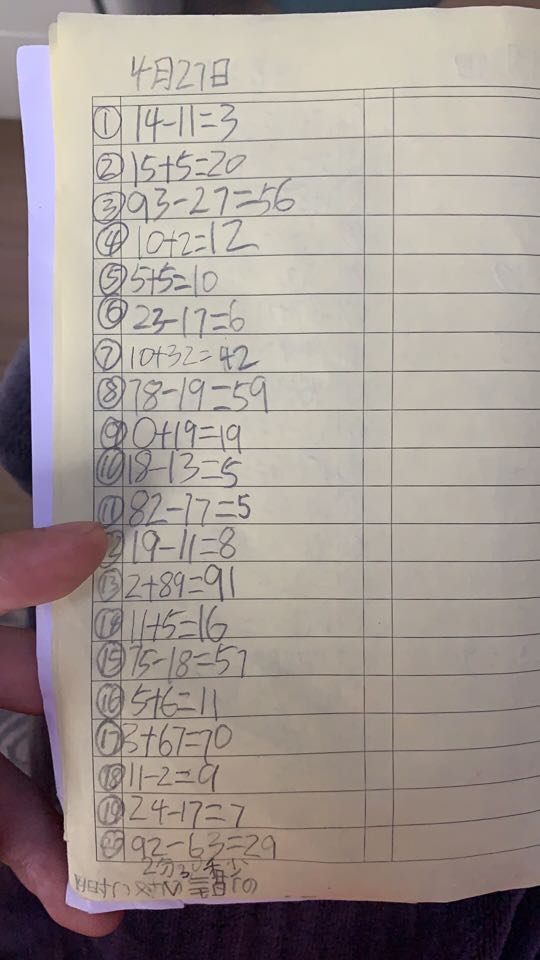 4月27日
① 14-11=3
② 15+5=20
③ 93-27=56
④ 10+2=12
⑤ 5+5=10
⑥ 23-17=6
⑦ 10+32=42
⑧ 78-19=59
⑨ 0+19=19
⑩ 18-13=5
⑪ 82-77=5
⑫ 19-11=8
⑬ 2+89=91
⑭ 11+5=16
⑮ 75-18=57
⑯ 5+6=11
⑰ 3+67=70
⑱ 11-2=9
⑲ 24-17=7
⑳ 92-63=29
2分30秒